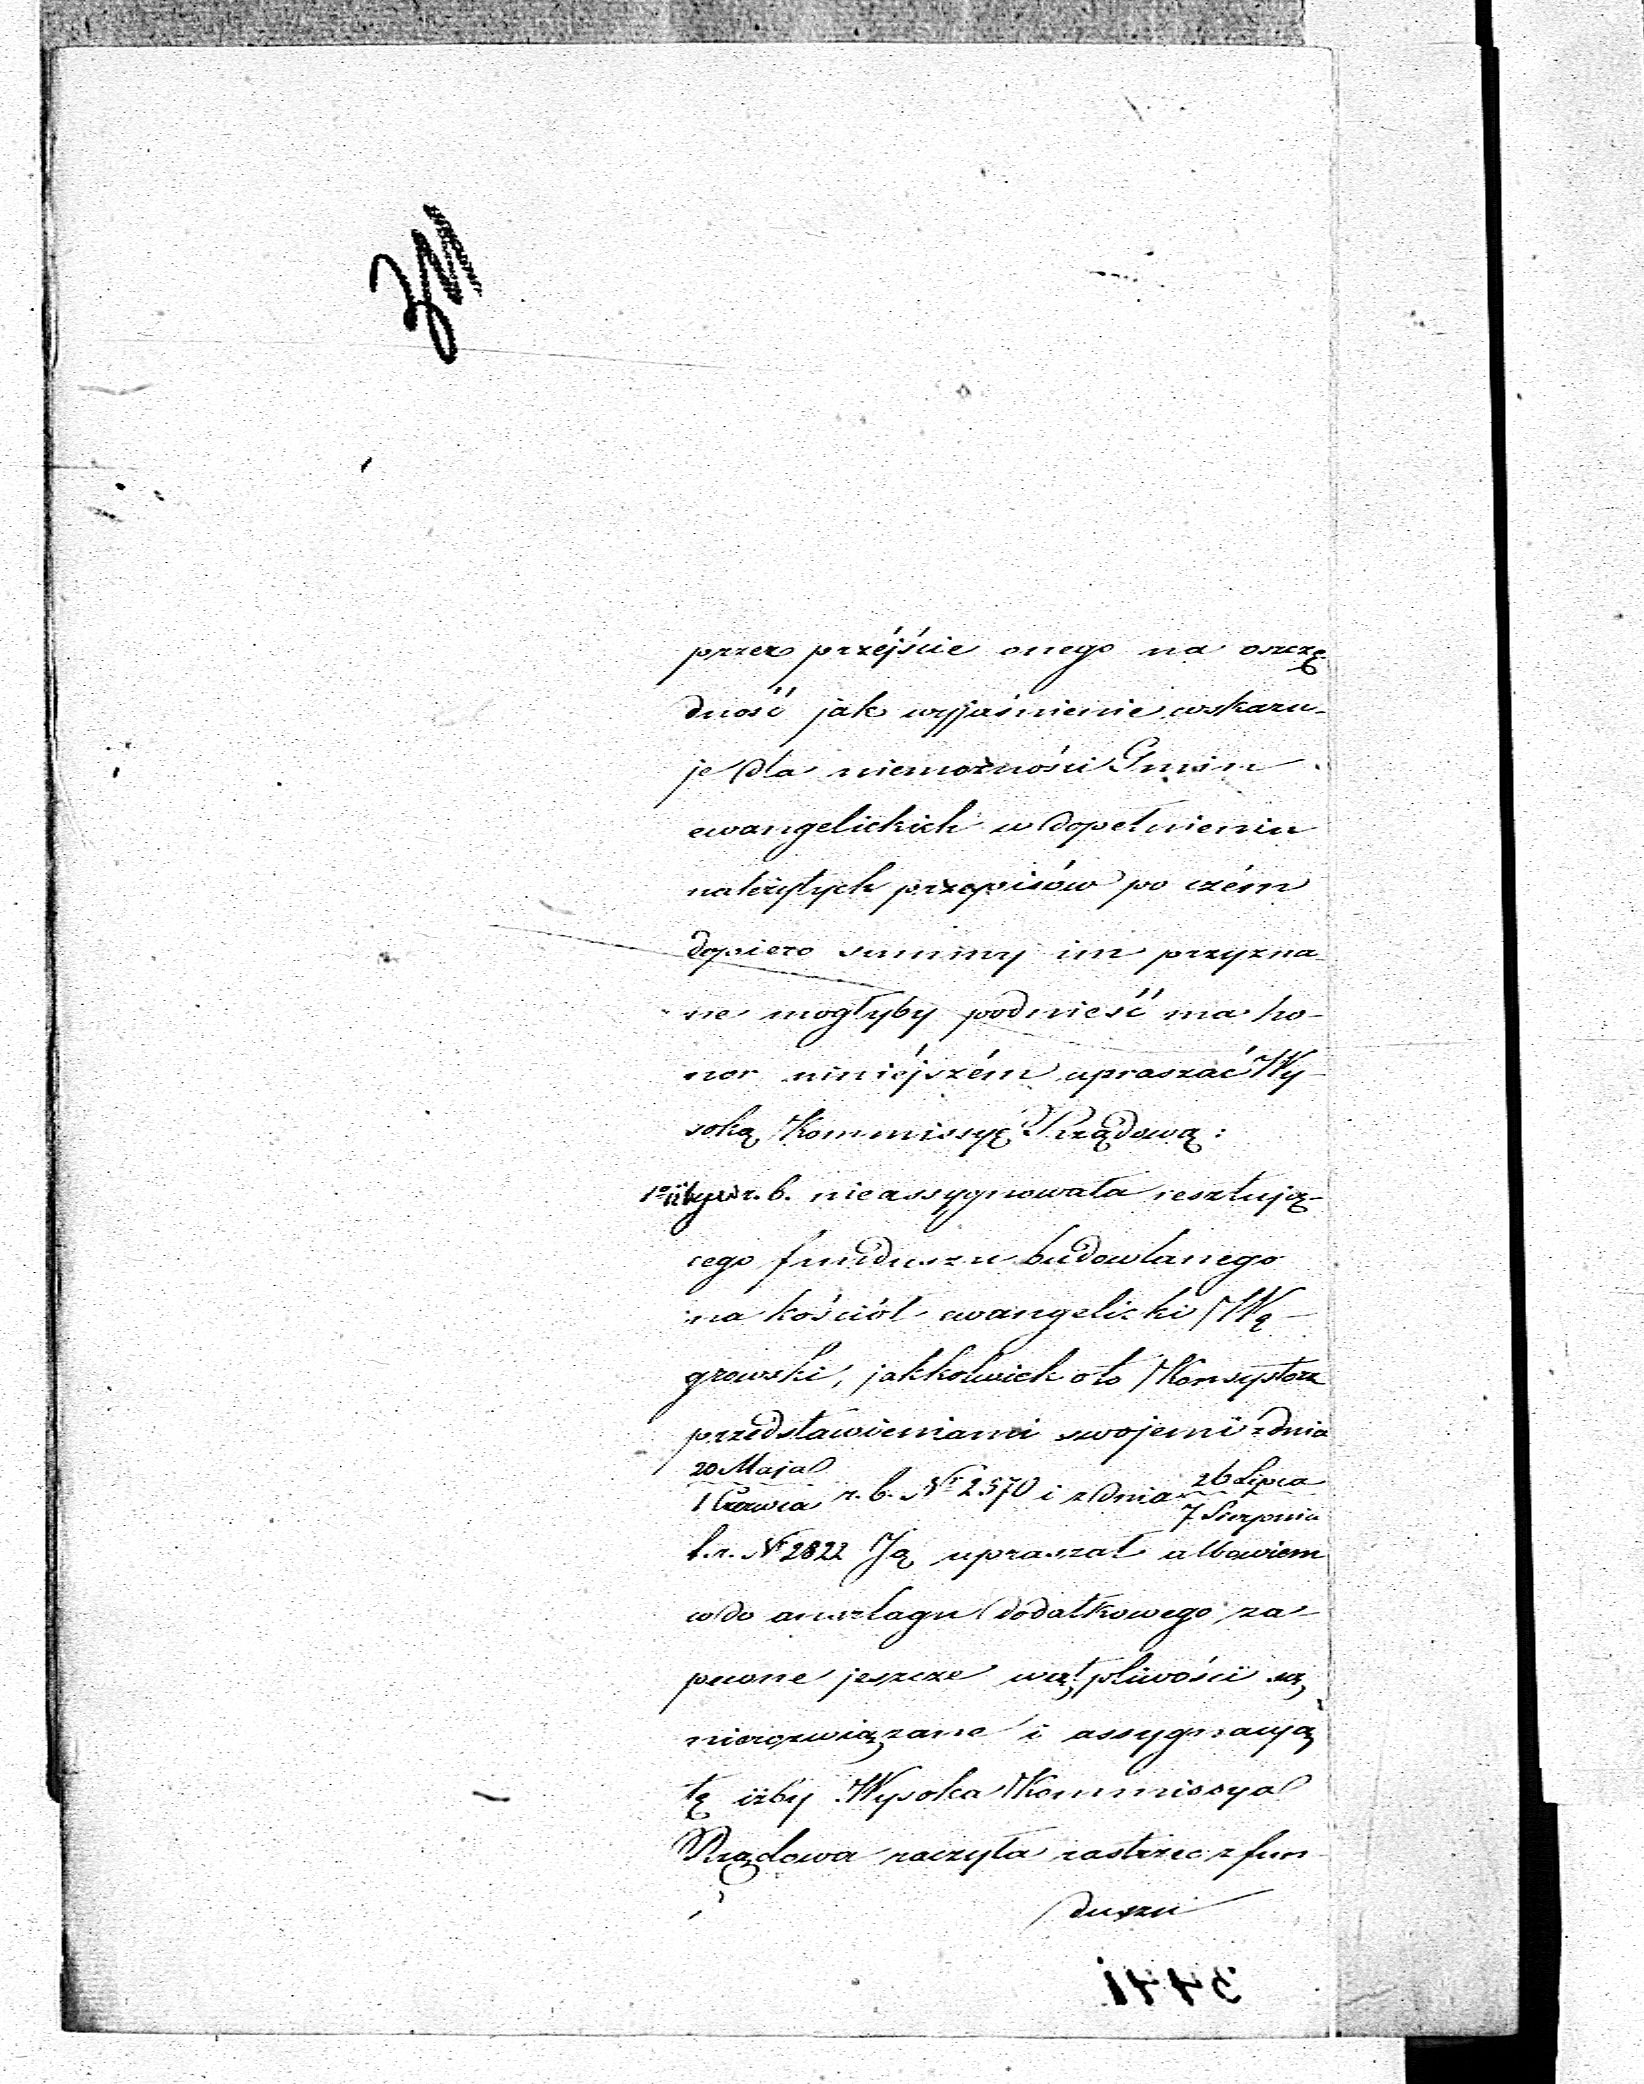 przez przéjście onego na oszczę-
dność jak wyjaśnienie wskazu-
je dla niemożności Gmin
ewangelickich w dopełnieniu
należytych przepisów po czém
dopiero summy im przyzna
ne mogłyby podnieść ma ho-
nor niniéjszém upraszać Wy-
soką Kommissyę Rządową:
1º r. b. nieassygnowała resztują-
cego funduszu budowlanego
na kościół ewangelicki Wę-
growski, jakkolwiek o to Konsystorz
przedstawieniami swojemi z dnia
20 Maja / 1 Czerwca r. b. Nr 2570 i z dnia 26 Lipca / 7 Sierpnia
b. r. Nr 2822 Ją upraszał albowiem
co do anszlagu dodatkowego, za-
pewne jeszcze wątpliwości są
nierozwiązane i assygnacyą
tę iżby Wysoka Kommissya
Rządowa raczyła zastrzec z fun-
duszu